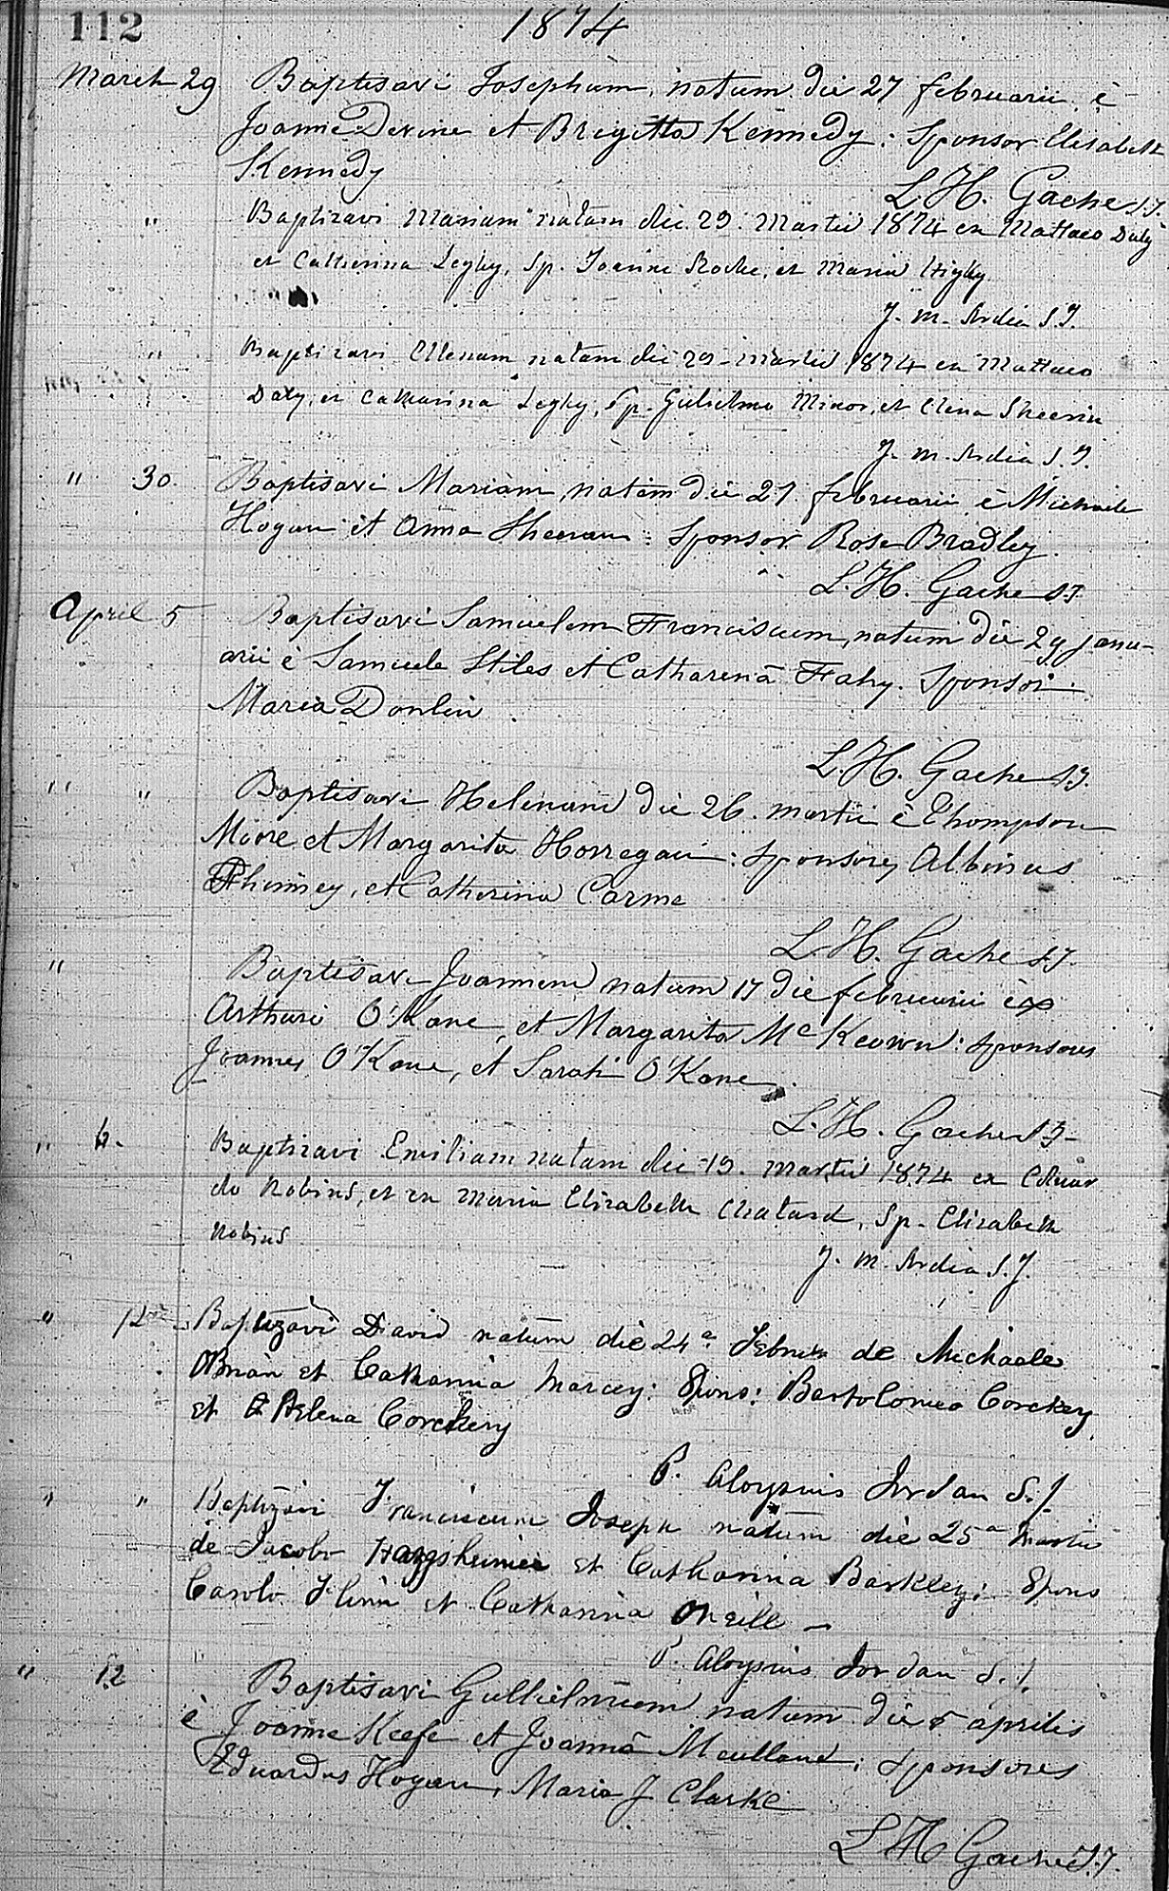 112
1874
March 29 Baptisavi Josephum, natum die 27 februarii è
Joanne Devine et Brigitta Kennedy: Sponsor Elisabeth
Kennedy
L. H. Gache S.J.
" Baptizavi Mariam natam die 29 Martii 1874 ex Mattaeo Daly
et Catherina Leghy, Sp. Joanne Roche, et Maria Highy
J. M. Ardia S.J.
" Baptizavi Ellenam natam die 29 Martii 1874 ex Mattaeo
Daly, et Catharina Leghy, Sp. Gulielmo Minor, et Elena Sheerin
J. M. Ardia S.J.
" 30 Baptisavi Mariam natam die 27 februarii è Michaele
Hogan et Anna Sheeran: Sponsor Rose Bradley.
L. H. Gache S.J.
April 5 Baptisavi Samuelem Franciscum, natum die 29 janu-
arii è Samuele Stiles et Catharenâ Fahy. Sponsor
Maria Donlin.
L. H. Gache S.J.
" " Baptisavi Helenam die 26. martii è Thompson
Moore et Margarita Horregan: Sponsores Albinus
Phinney, et Catherina Carme
L. H. Gache S.J.
" Baptisavi Joannem natum 17 die februarii ex
Arthuri O'Kane, et Margarita McKeown: Sponsores
Joannes O'Kane, et Sarah O'Kane.
L. H. Gache S.J.
" 6. Baptizavi Emiliam natam die 19. Martii 1874 ex Eduar
do Robins, et ex Maria Elizabeth Chatard, Sp. Elizabeth
Robins
J. M. Ardia S.J.
" 12 Baptizavi David natum die 24a de Michaele
OBrian et Catharina Marcey: Spons: Bartolomeo Corckery
et Helena Corckery
P. Aloysius Jordan S.J.
" " Baptizavi Franciscum Joseph natum die 25a Martii
de Jacobo et Catharina Barkley; Spons
Carolo Flinn et Catharina Oneill —
P. Aloysius Jordan S.J.
" 12 Baptisavi Gullielmum natum die 5 aprilis
è Joanne Keefe et Joannâ; Sponsores
Eduardus Hogan, Maria J Clarke
L H Gache S.J.